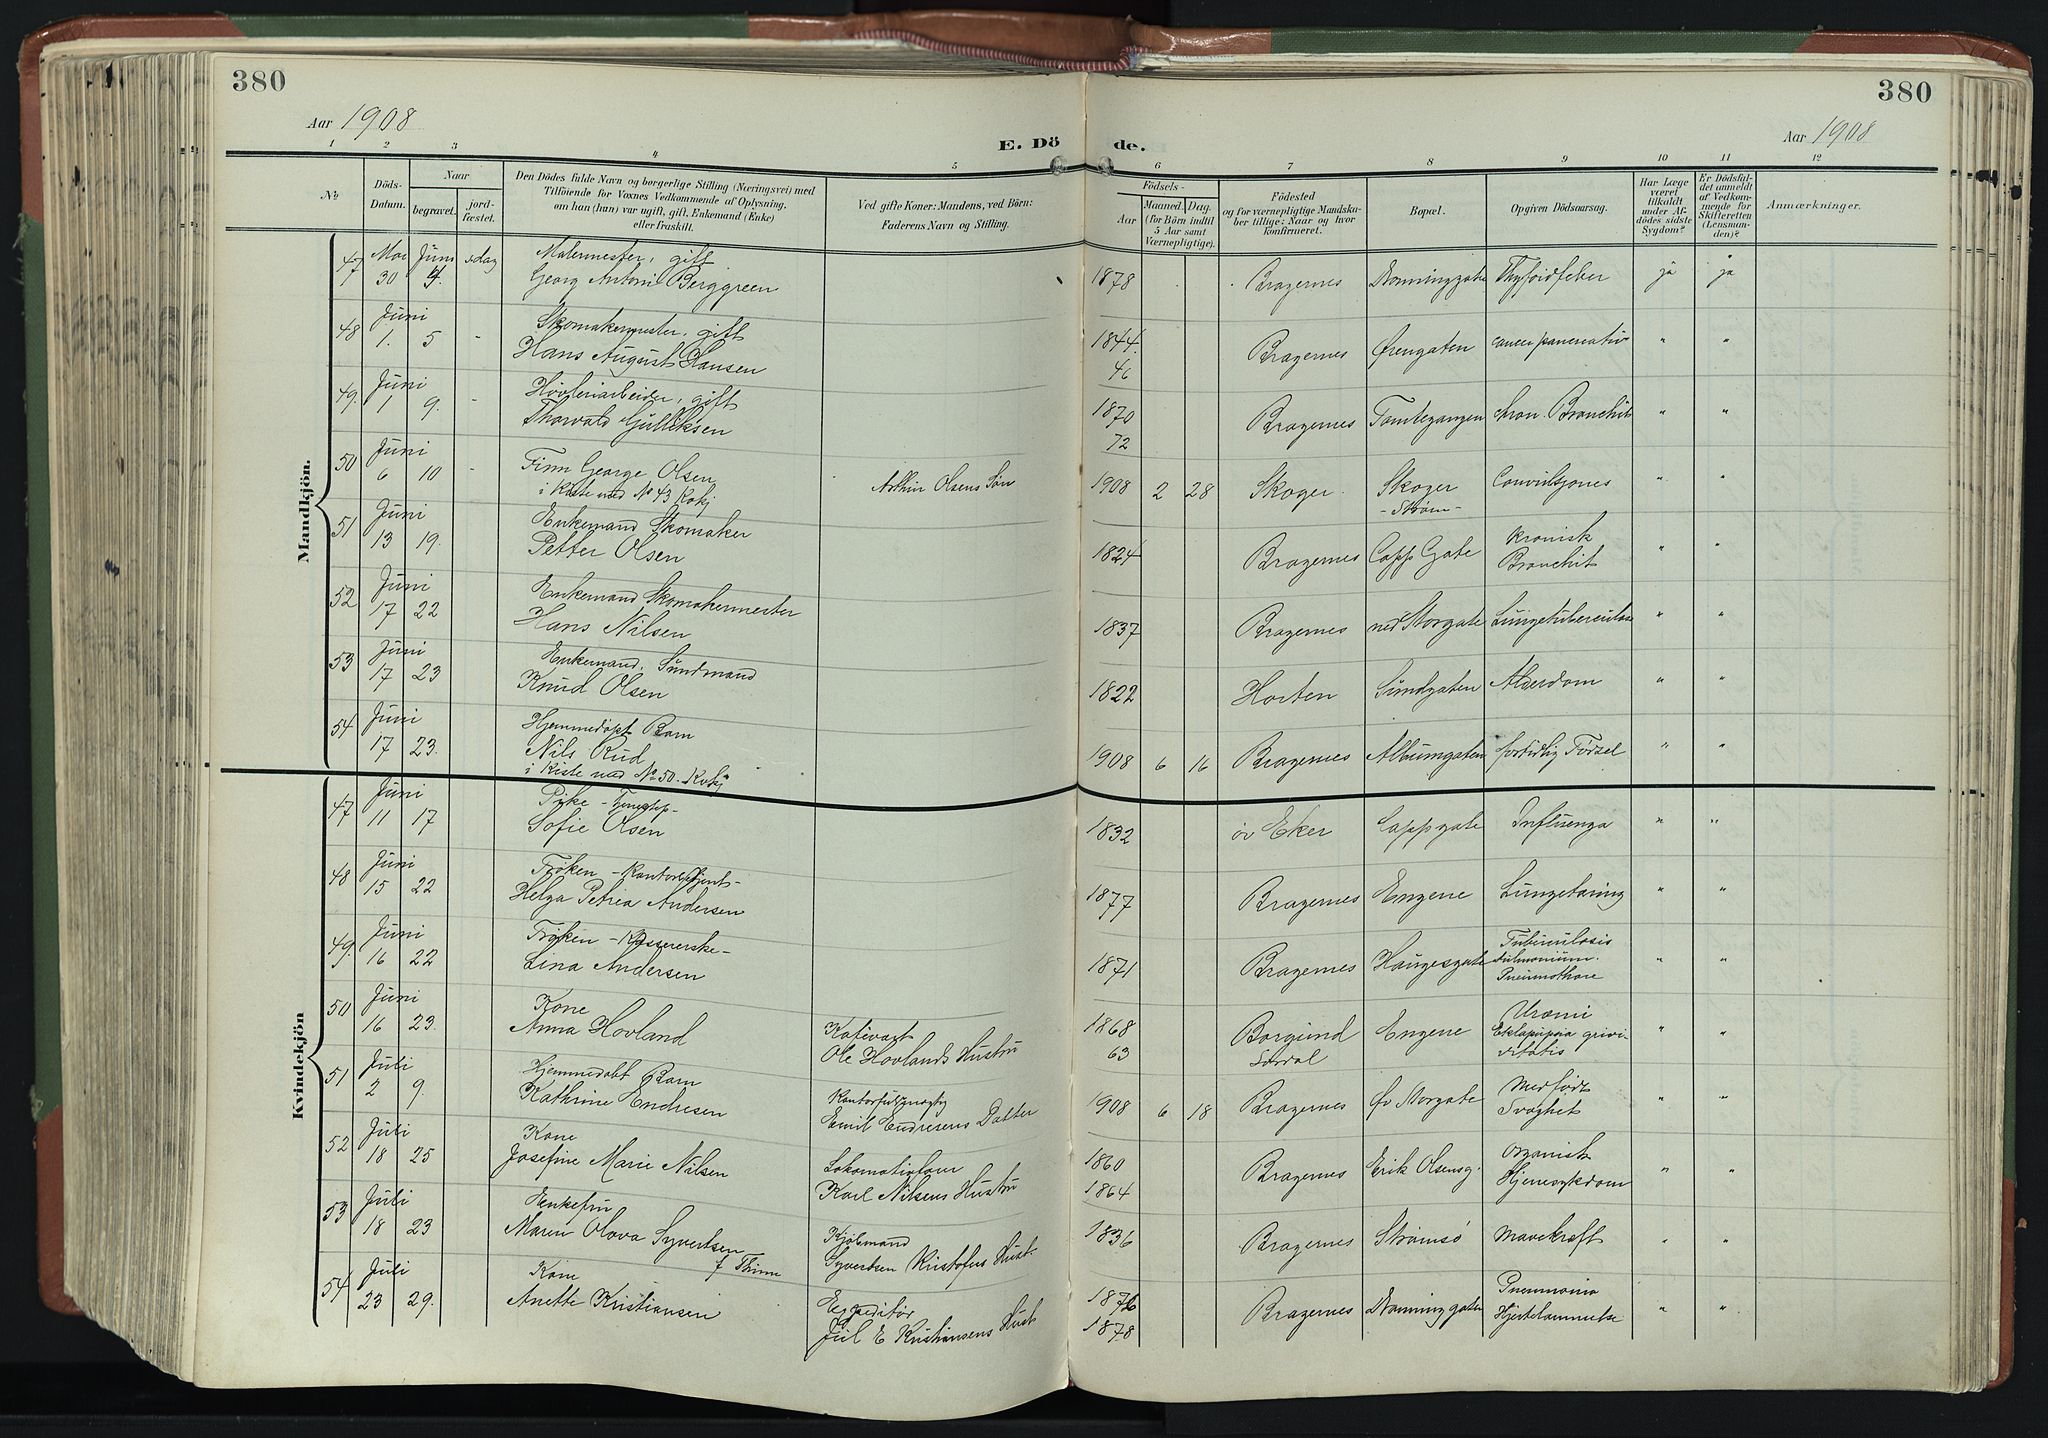 380
380
Aar 1908
Aar 1908
E. Dö
de.
1 2 3 4 5 6 7 8 9 10 11 12
No
Döds-
Datum.
Naar
begravet.
jord-
fæstet.
Den Dödes fulde Navn og borgerlige Stilling (Næringsvei) med
Tilföiende for Voxnes Vedkommende af Oplysning,
om han (hun) var ugift, gift, Enkemand (Enke)
eller fraskilt.
Ved gifte Koner: Mandens, ved Börn:
Faderens Navn og Stilling.
Födsels-
Aar
Maaned.
Dag.
(for Börn indtil
5 Aar samt
Værnepligtige).
Födested
og for værnepligtige Mandska-
ber tillige: Naar og hvor
konfirmeret.
Bopæl.
Opgiven Dödsaarsag.
Har Læge
været
tilkaldt
under Af-
dödes sidste
Sygdom?
Er Dödsfal-
det anmeldt
af Vedkom-
mende for
Skifteretten
(Lensman-
den)?
Anmærkninger.
Mandkjön.
47 Mai 30 Juni 4. s.dag Malermester, gift
Georg Antoni Berggreen 1878 Bragernes Dronninggate Thyfoidfeber ja ja
48 Juni 1. 5 - Skomakermester, gift
Hans August Hansen 1844. 46 Bragernes Ørengaten cancer pancreatis " "
49. Juni 1 9. - Høvleriarbeider, gift
Thorvald Gulliksen 1870 72 Bragernes Tomtegangen kron. Bronchit " "
50 Juni 6 10 - Finn George Olsen
i Kiste med No 43 Kvkj Arthur Olsens Søn 1908 2 28 Skoger Skoger
- Strøm - Convulsjones " "
51 Juni 13 19. Enkemand Skomaker
Petter Olsen 1824 Bragernes Capp Gate kronisk
Bronchit " "
52 Juni 17 22 Enkemand Skomakermester
Hans Nilsen 1837 Bragernes ned Storgate Lungetuberculose " "
53 Juni 17 23 Enkemand. Sundmand
Knud Olsen 1822 Horten Sundgaten Alderdom " "
54 Juni 17 23. Hjemmedøpt Barn
Nils Rud
i Kiste med No 50. Kvkj 1908 6 16 Bragernes Albumgaten fortidlig Fødsel " "
Kvindekjön
47 Juni 11 17 Pike -
Sofie Olsen 1832 øv Eker Cappgate Influenza " "
48 Juni 15 22 Frøken -
Helga Petrea Andersen 1877 Bragernes Engene Lungetæring " "
49. Juni 16 22 Frøken - Kassererske -
Lina Andersen 1871 Bragernes Haugesgate Tuberculosis
pulmonium.
Pneumothora " "
50 Juni 16 23. Kone
Anna Hovland
Ole Hovlands Hustru 1868 63 Borgund
Engene Uræmi
" "
51 Juli 2 9. Hjemmedøbt Barn
Kathrine Endresen Kontorfuldmægtig
Emil Endresens Datter 1908 6 18 Bragernes Øv Storgate Medfødt
Svaghet " "
52 Juli 18 25 Kone
Josefine Marie Nilsen
Karl Nilsens Hustru 1860 1864 Bragernes Erik Olsensg. organisk
Hjernesykdom " "
53 Juli 18 23 Enkefru
Maren Olava Syvertsen
f Kjøbmand
Syvertsen Kristofus Hust 1836 Bragernes Strømsø Mavekræft " "
54 Juli 23 29. Kone
Anette Kristiansen Expeditør
Jul E Kristiansens Hust 1876 1878 Bragernes Dronninggaten Pneumonia
Hjertelammelse " "